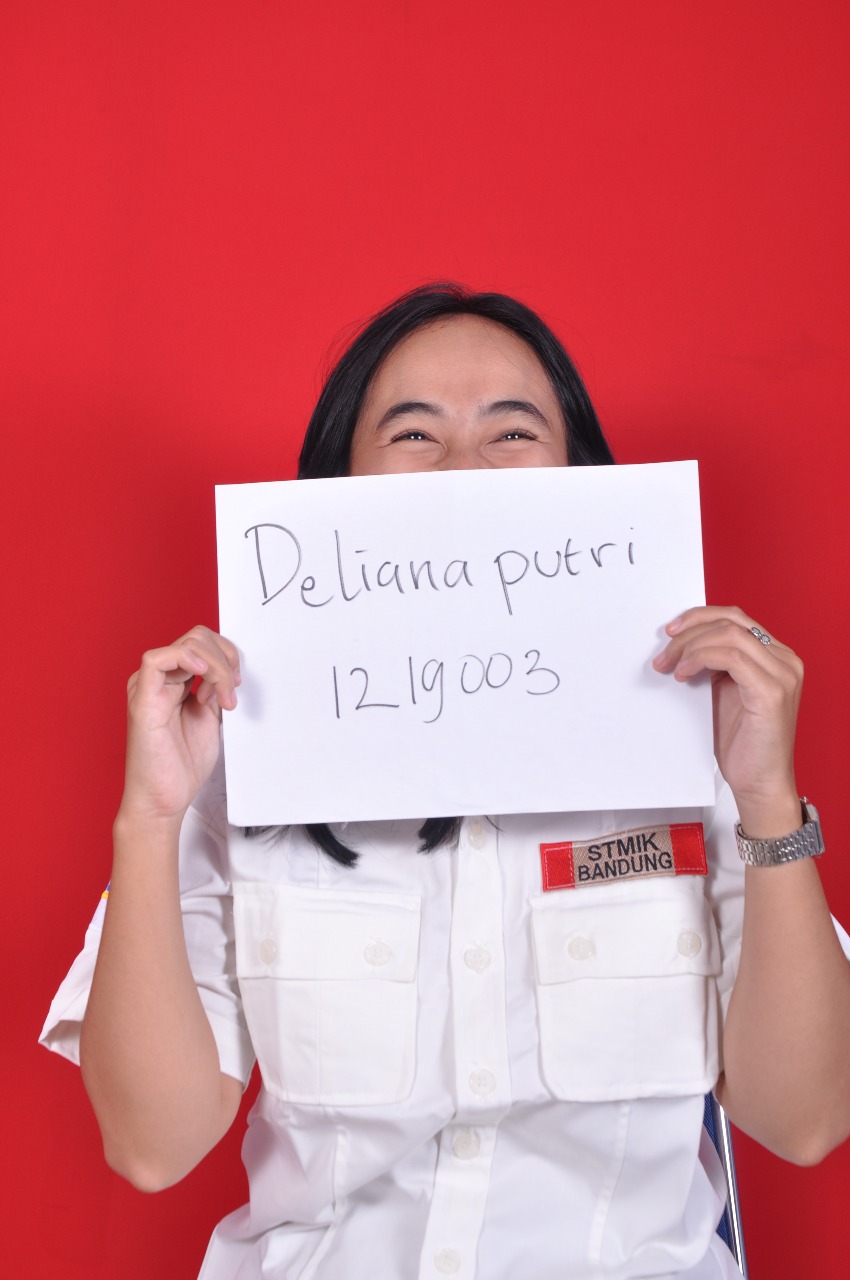 Deliana putri
1219003
STMIK
BANDUNG